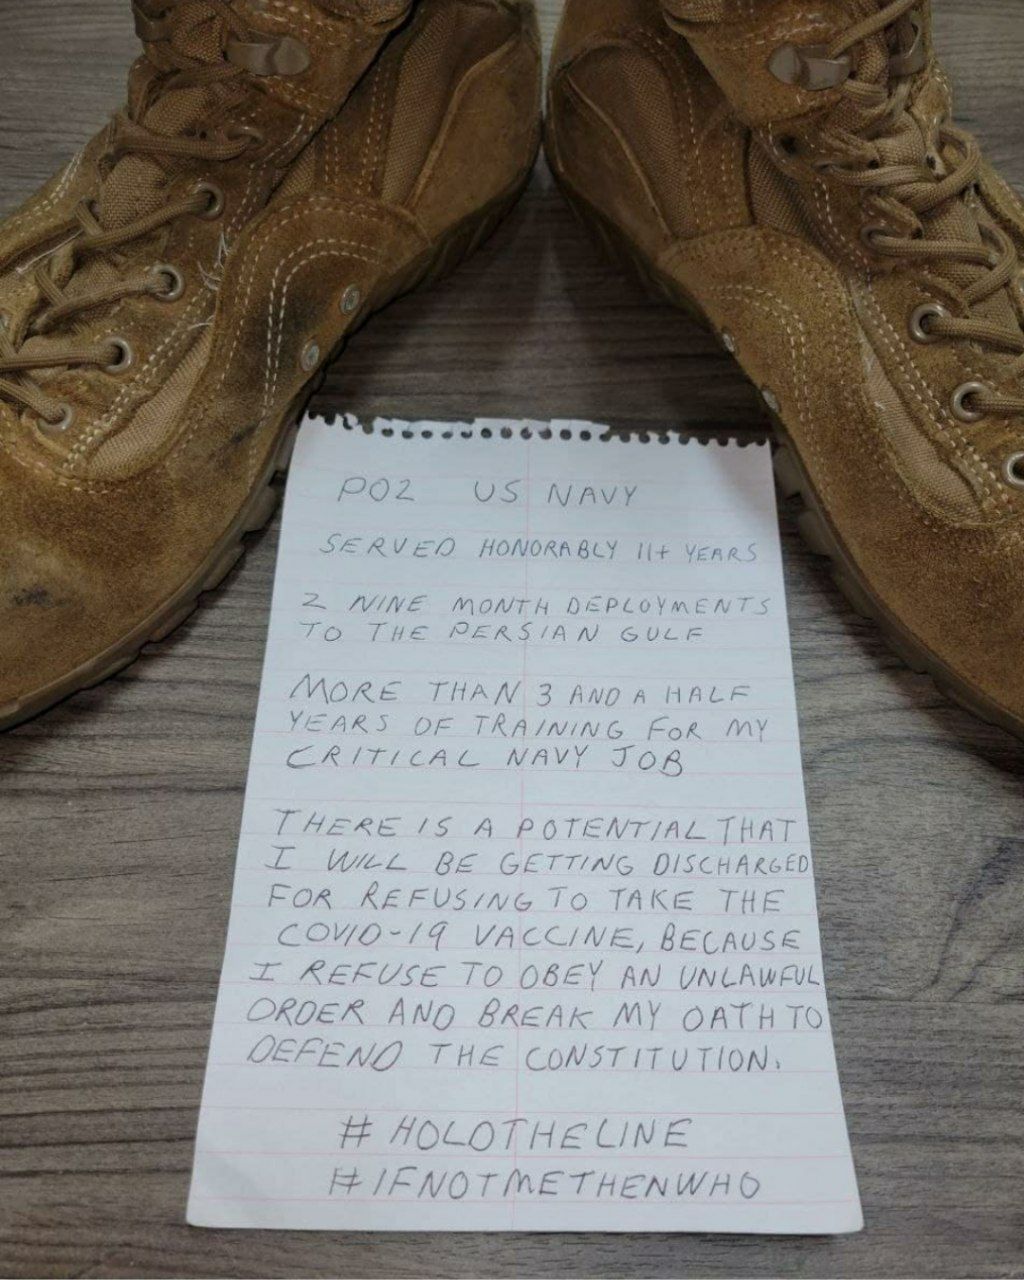 PO2 US NAVY
SERVED HONORABLY 11+ YEARS
2 NINE MONTH DEPLOYMENTS
TO THE PERSIAN GULF
MORE THAN 3 AND A HALF
YEARS OF TRAINING FOR MY
CRITICAL NAVY JOB
THERE IS A POTENTIAL THAT
I WILL BE GETTING DISCHARGED
FOR REFUSING TO TAKE THE
COVID-19 VACCINE, BECAUSE
I REFUSE TO OBEY AN UNLAWFUL
ORDER AND BREAK MY OATH TO
DEFEND THE CONSTITUTION.
#HOLDTHELINE
#IFNOTMETHENWHO